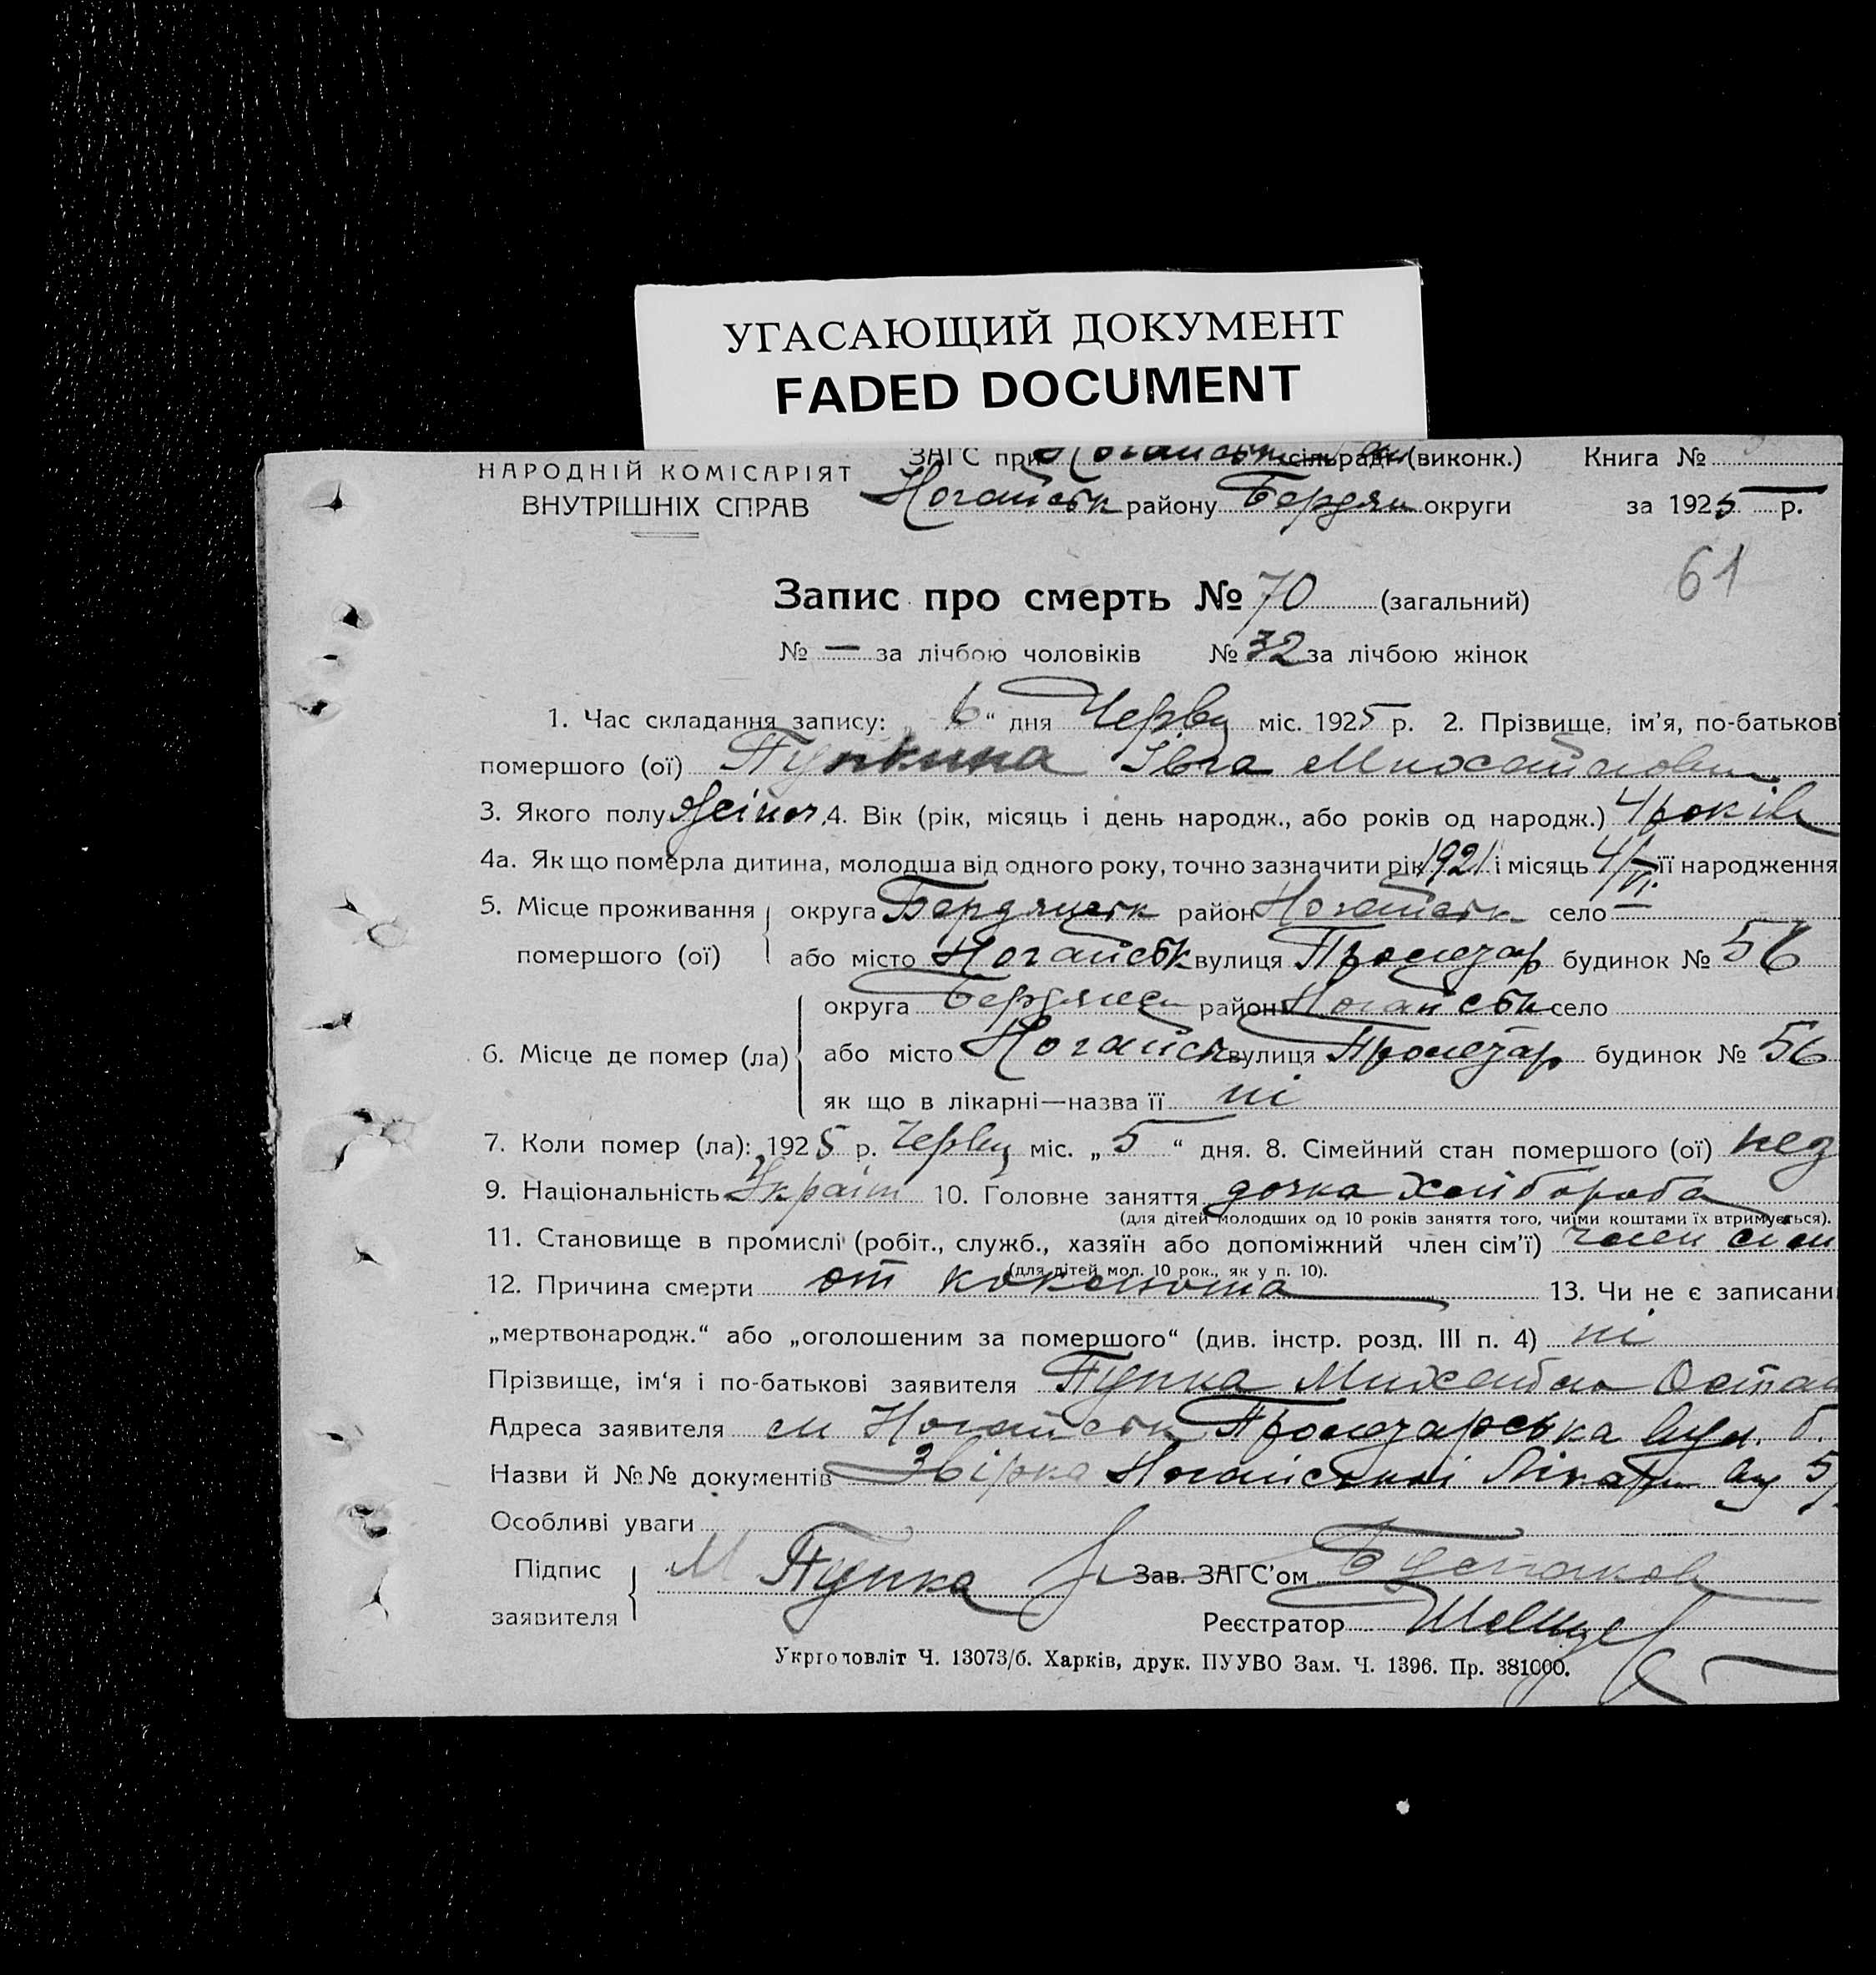 УГАСАЮЩИЙ ДОКУМЕНТ
FADED DOCUMENT
НАРОДНІЙ КОМІСАРІЯТ
ВНУТРІШНІХ СПРАВ
ЗАГС при Ногайськ сільраді (виконк.) Книга №
Ногайськ району Бердян округи за 1925 р.
61
Запис про смерть № 70 (загальний)
№ — за лічбою чоловіків № 32 за лічбою жінок
1. Час складання запису: 6 “ дня Червц міс. 1925 р. 2. Прізвище, ім’я, по-батькові
помершого (ої) Івга Михайловн
3. Якого полу жіноч. 4. Вік (рік, місяць і день народж., або років од народж.) 4 років
4а. Як що померла дитина, молодша від одного року, точно зазначити рік 1921 і місяць 4/VI. її народження
5. Місце проживання округа Бердянськ район Ногайськ село —
помершого (ої) або місто Ногайськ вулиця Пролєтар будинок № 56
округа Бердянськ район Ногайськ село
6. Місце де помер (ла) або місто Ногайськ вулиця Пролєтар будинок № 56
як що в лікарні—назва її ні
7. Коли помер (ла): 1925 р. Червц міс. „ 5 “ дня. 8. Сімейний стан помершого (ої) нез
9. Національність Україн 10. Головне заняття дочка хлібороба
(для дітей молодших од 10 років заняття того, чиїми коштами їх втримується).
11. Становище в промислі (робіт., служб., хазяїн або допоміжний член сім’ї) член сім
(для дітей мол. 10 рок., як у п. 10).
12. Причина смерти от коклюша 13. Чи не є записани
„мертвонародж.“ або „оголошеним за помершого“ (див. інстр. розд. III п. 4) ні
Прізвище, ім‘я і по-батькові заявителя Пупка Михайло Остап
Адреса заявителя м Ногайськ Пролєтарська вул. б.
Назви й №№ документів Ногайської Лікарн 5/
Особливі уваги
Підпис М Пупка Зав. ЗАГС’ом
заявителя
Реєстратор
Укрголовліт Ч. 13073/б. Харків, друк. ПУУВО Зам. Ч. 1396. Пр. 381000.